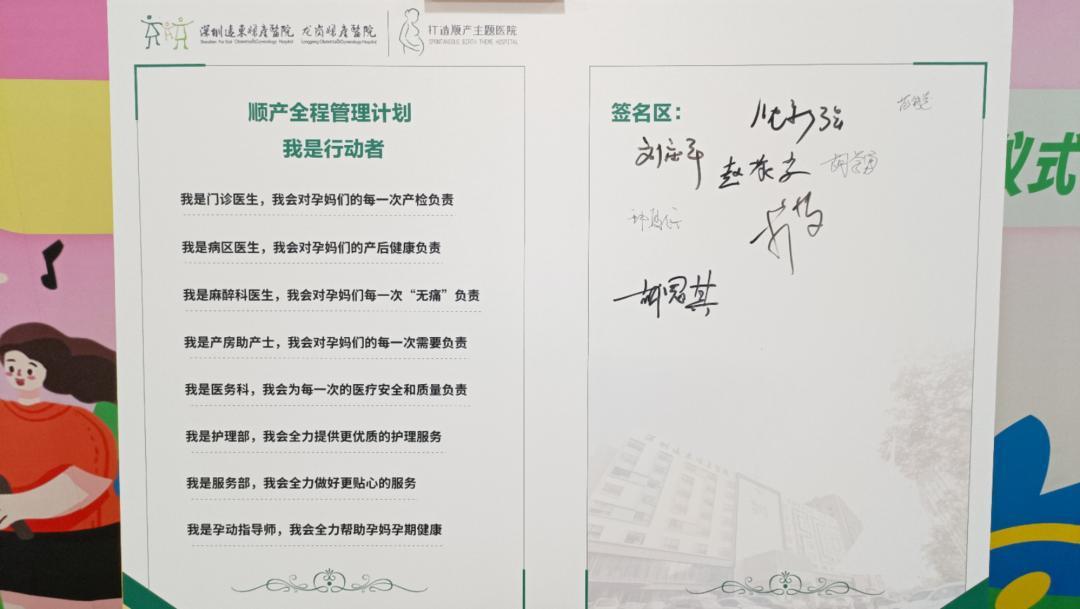 深圳遠東婦產醫院 龙岗婦產醫院
Shenzhen Far East Obstetrics&Gynecology Hospital Longgang Obstetrics&Gynecology Hospital
打造顺产主题医院
SPONTANEOUS BIRTH THEME HOSPITAL
顺产全程管理计划
我是行动者
我是门诊医生，我会对孕妈们的每一次产检负责
我是病区医生，我会对孕妈们的产后健康负责
我是麻醉科医生，我会对孕妈们每一次“无痛”负责
我是产房助产士，我会对孕妈们的每一次需要负责
我是医务科，我会为每一次的医疗安全和质量负责
我是护理部，我会全力提供更优质的护理服务
我是服务部，我会全力做好更贴心的服务
我是孕动指导师，我会全力帮助孕妈孕期健康
签名区：
胡思其
仪式